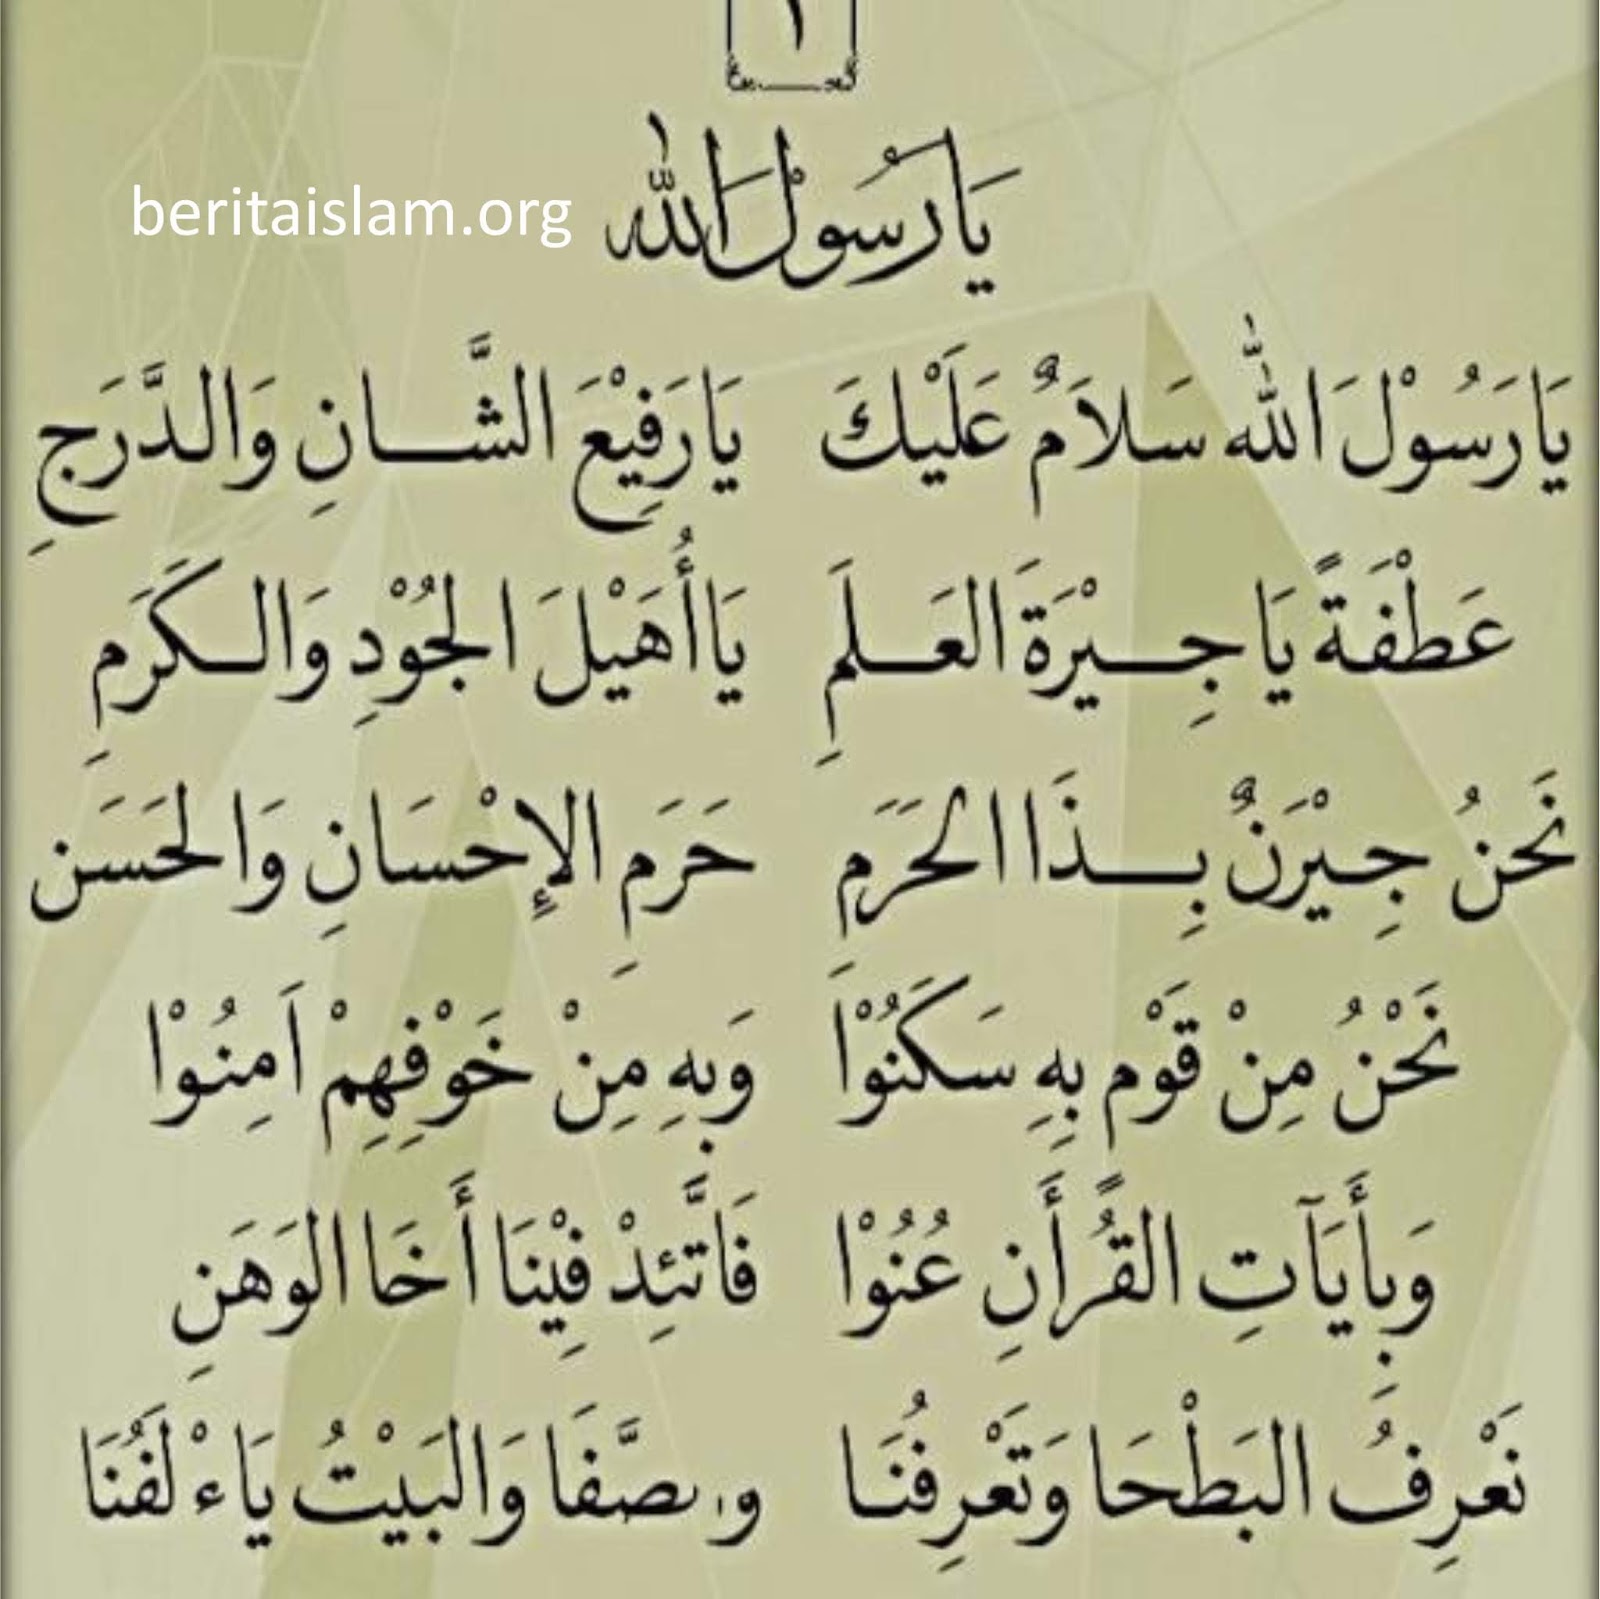 ١
يَا رَسُوْلَ الله
beritaislam.org
يَا رَسُوْلَ الله سَلاَمٌ عَلَيْكَ يَا رَفِيْعَ الشَّانِ وَالدَّرَجِ
عَطْفَةً يَا جِيْرَةَ العَلَمِ يَا أُهَيْلَ الجُوْدِ وَالكَرَمِ
نَحْنُ جِيْرَنٌ بِذَا الحَرَمِ حَرَمِ الإِحْسَانِ وَالحَسَن
نَحْنُ مِنْ قَوْمٍ بِهِ سَكَنُوْا وَبِهِ مِنْ خَوْفِهِمْ اَمِنُوْا
وَبِأَيَآتِ القُرْأَنِ عُنُوْا فَاتَّئِدْ فِيْنَا أَخَا الوَهَنِ
نَعْرِفُ البَطْحَا وَتَعْرِفُنَا وَالصَّفَا وَالبَيْتُ يَاءْلَفُنَا